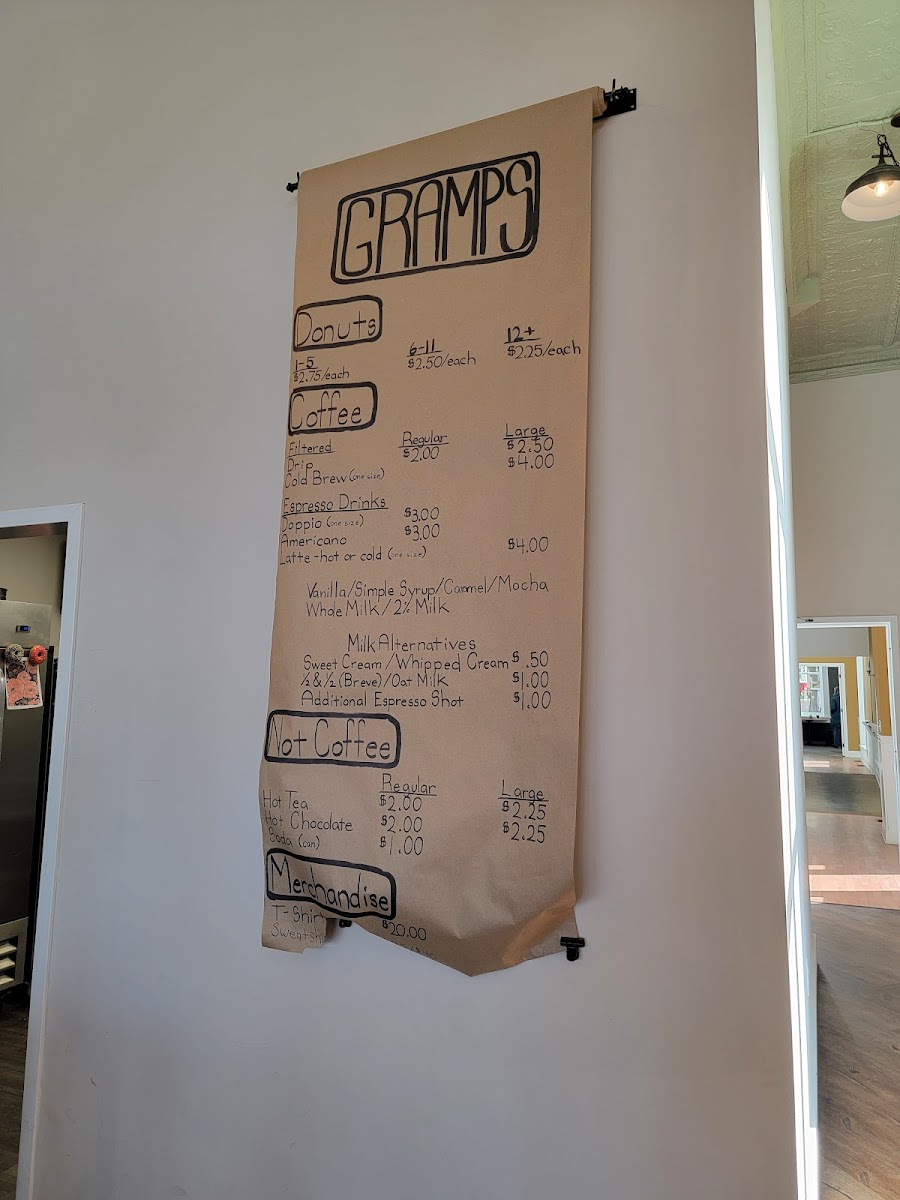 GRAMPS
Donuts
1-5 6-11 12+
$2.75/each $2.50/each $2.25/each
Coffee
Filtered Regular Large
Drip $2.00 $2.50
Cold Brew (one size) $4.00
Espresso Drinks
Doppio (one size) $3.00
Americano $3.00
Latte -hot or cold (one size) $4.00
Vanilla/Simple Syrup/Caramel/Mocha
Whole Milk/2% Milk
Milk Alternatives
Sweet Cream/Whipped Cream $.50
½ & ½ (Breve)/Oat Milk $1.00
Additional Espresso Shot $1.00
Not Coffee
Regular Large
Hot Tea $2.00 $2.25
Hot Chocolate $2.00 $2.25
Soda (can) $1.00
Merchandise
T-Shirt $20.00
Sweatsh